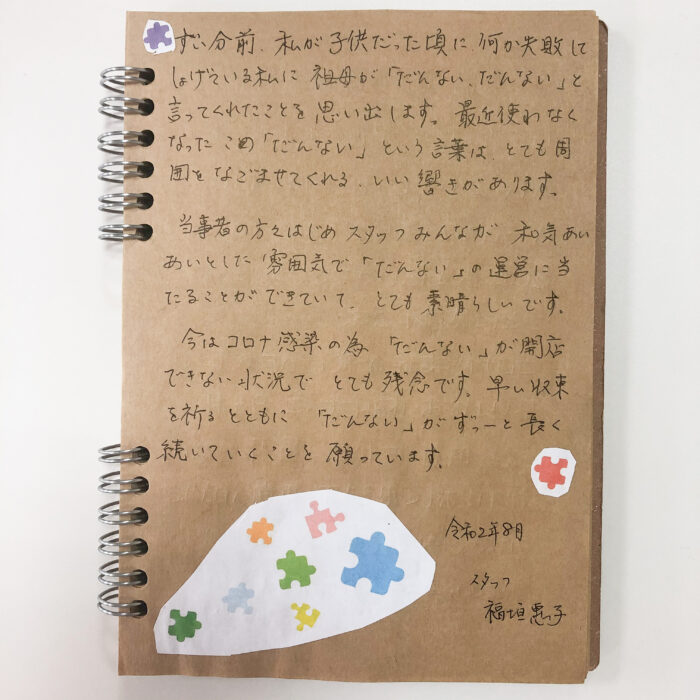 ずい分前、私が子供だった頃に、何か失敗して
しょげている私に 祖母が「だんない、だんない」と
言ってくれたことを思い出します。最近使わなく
なった この「だんない」という言葉は、とても周
囲をなごませてくれる、いい響きがあります。
当事者の方々はじめ スタッフ みんなが 和気あい
あいとした 雰囲気で「だんない」の運営に当
たることができていて、とても素晴らしいです。
今はコロナ感染の為「だんない」が開店
できない状況で とても残念です。早い収束
を祈るとともに「だんない」がずっーと長く
続いていくことを願っています。
令和2年8月
スタッフ
福垣恵子